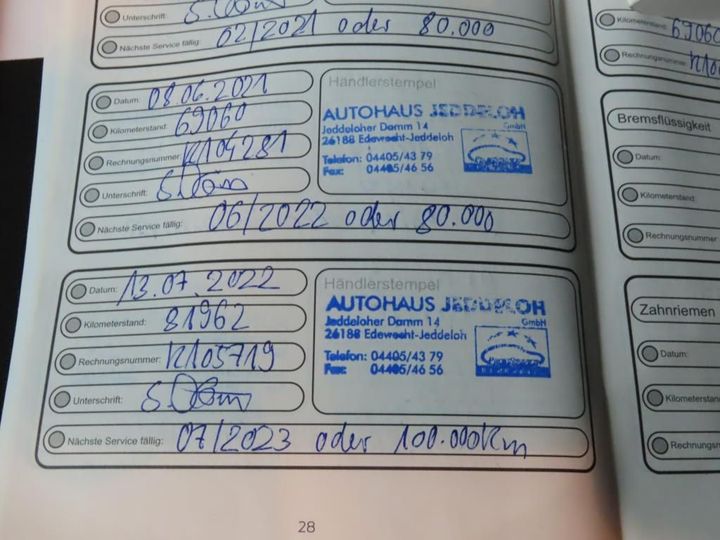 Unterschrift:
Nächste Service fällig: 02/2021 oder 80.000
Datum: 08.06.2021
Kilometerstand: 69060
Rechnungsnummer: K104281
Unterschrift:
Nächste Service fällig: 06/2022 oder 80.000
Händlerstempel
AUTOHAUS JEDDELOH
GmbH
Jeddeloher Damm 14
26188 Edewecht-Jeddeloh
Telefon: 04405/43 79
Fax: 04405/46 56
Datum: 13.07.2022
Kilometerstand: 81962
Rechnungsnummer: K105719
Unterschrift:
Nächste Service fällig: 07/2023 oder 100.000km
Händlerstempel
AUTOHAUS JEDDELOH
GmbH
Jeddeloher Damm 14
26188 Edewecht-Jeddeloh
Telefon: 04405/43 79
Fax: 04405/46 56
28
Kilometerstand: 69060
Rechnungsnummer:
Bremsflüssigkeit
Datum:
Kilometerstand:
Rechnungsnummer
Zahnriemen
Datum: